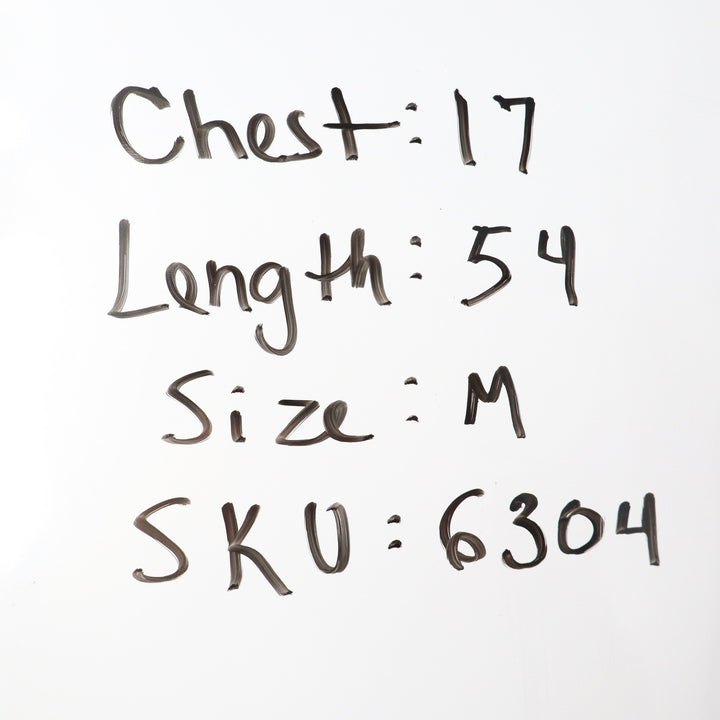 Chest: 17
Length: 54
Size: M
SKU: 6304